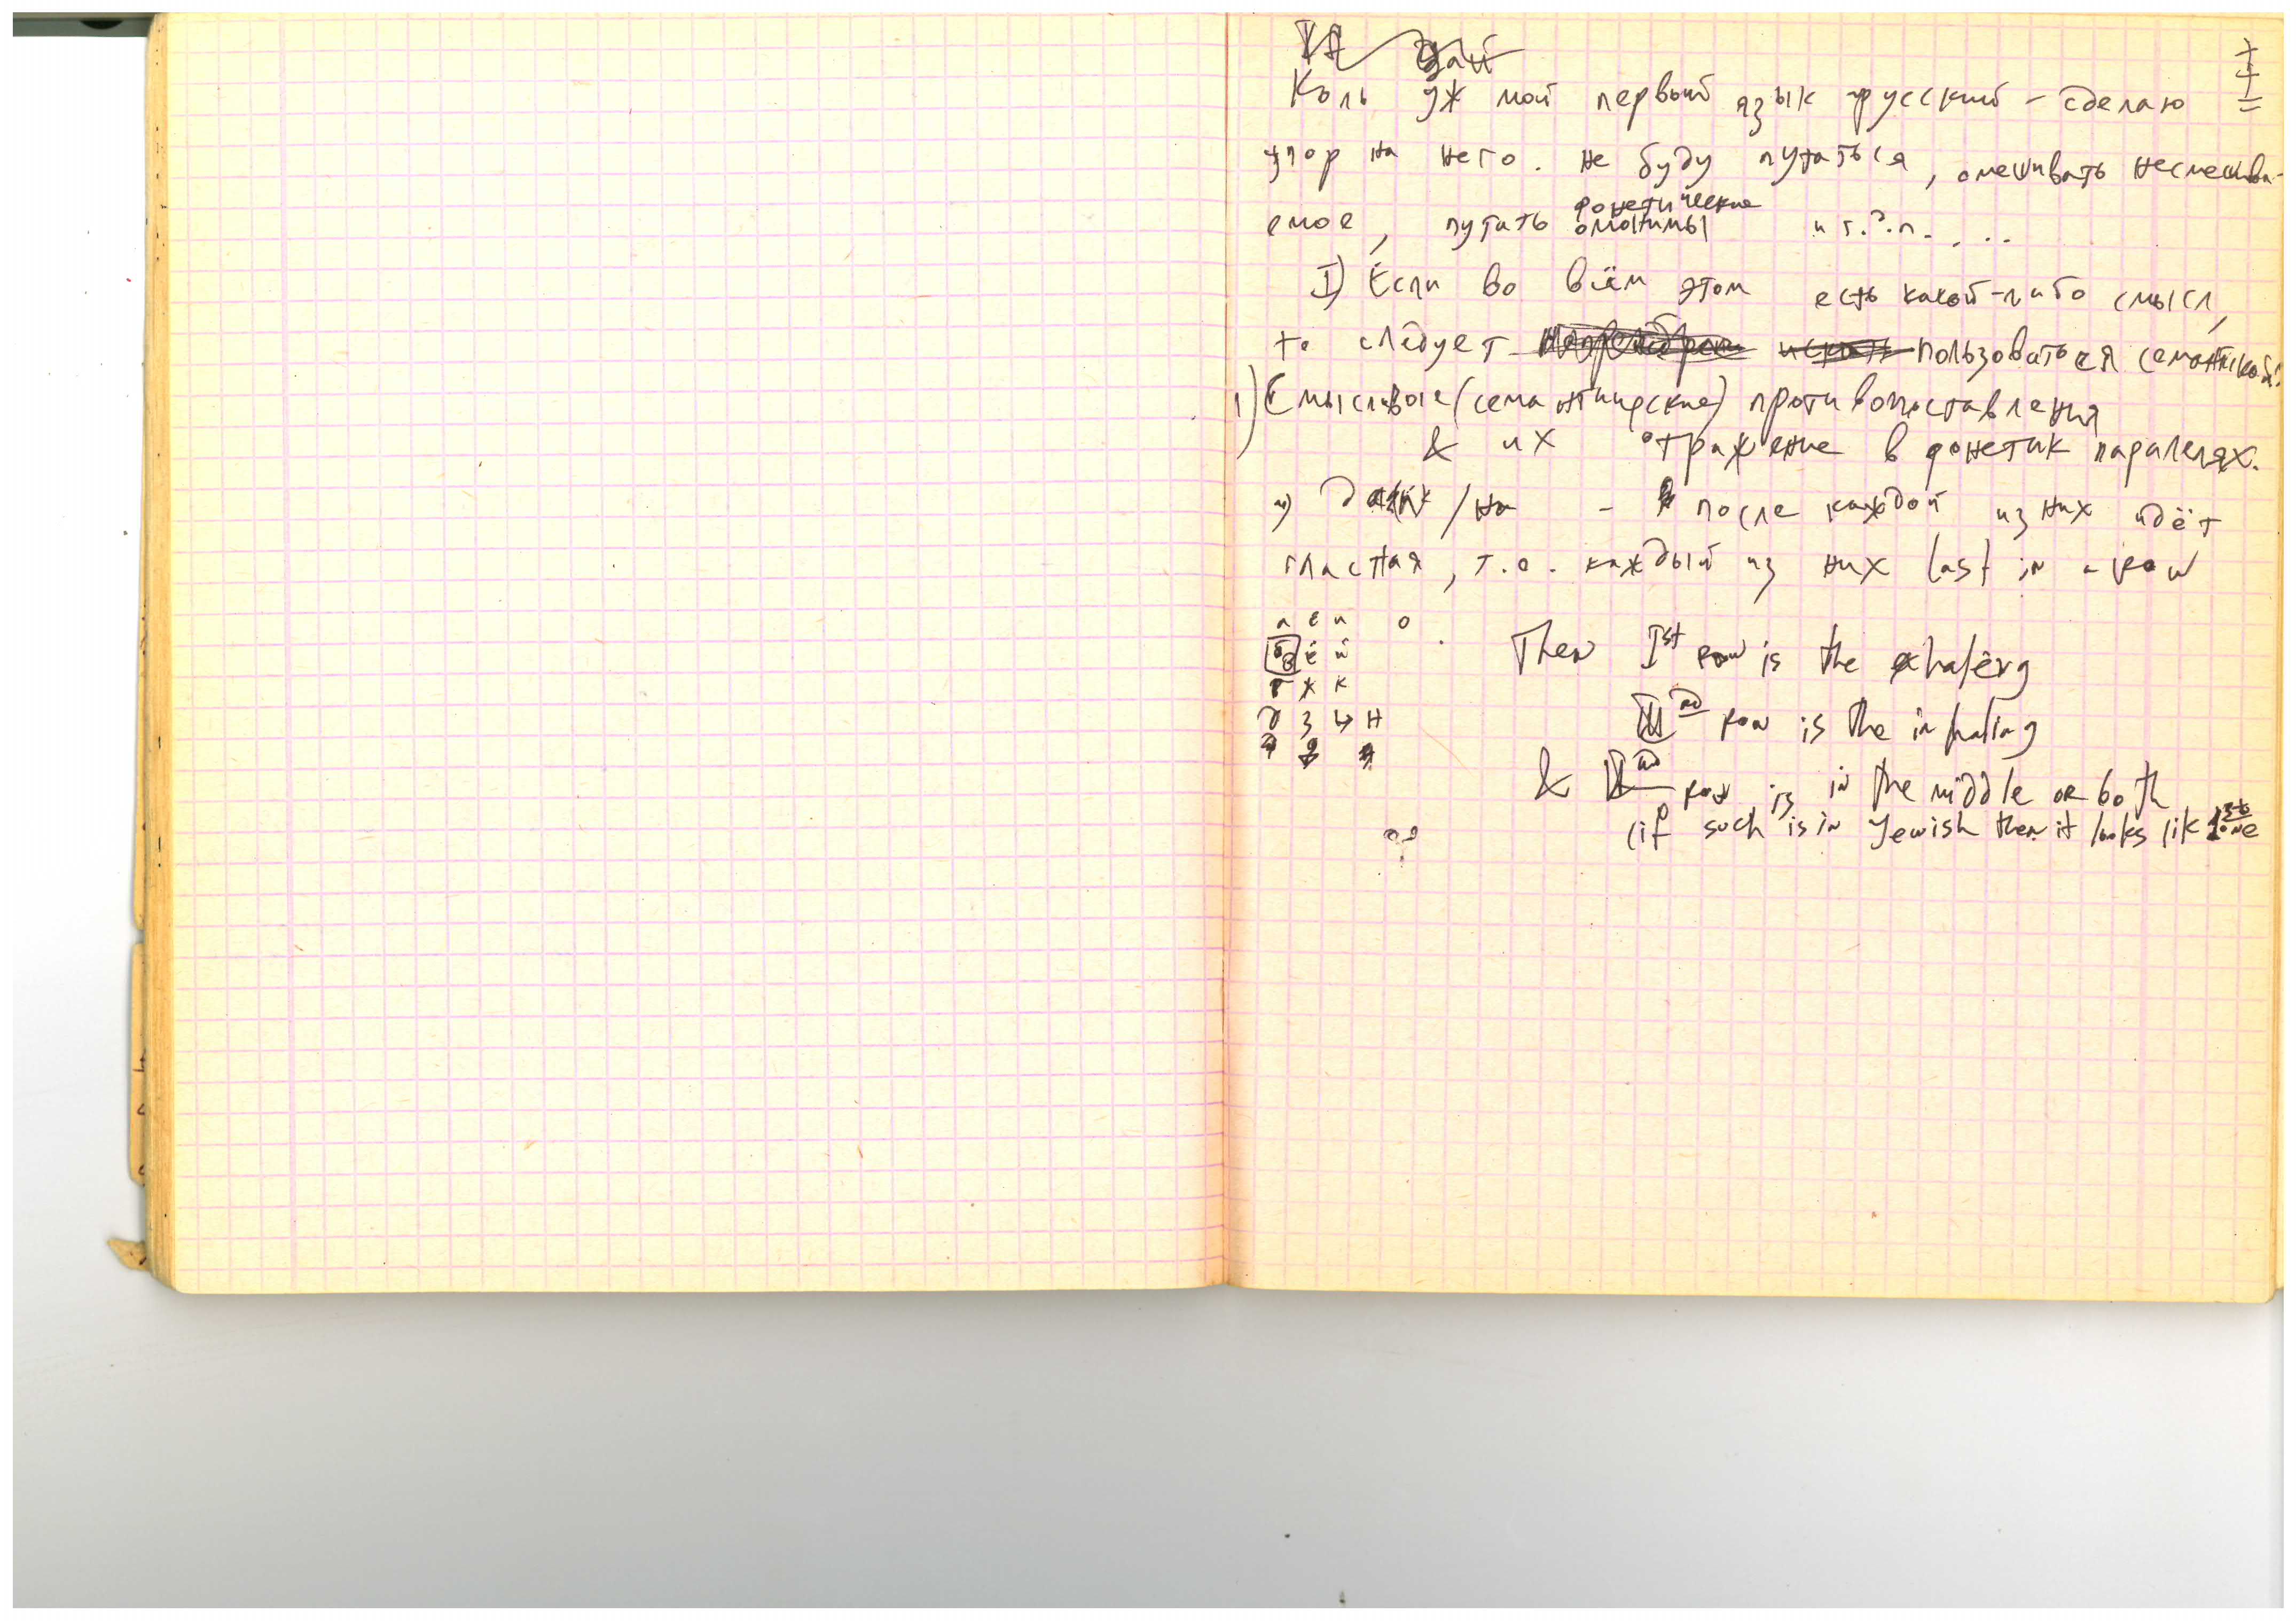 Коль уж мой первый язык русский - сделаю
упор на него. Не буду путаться, смешивать несмешива-
емое, путать фонетические омонимы и т.д.п. . . .
I) Если во всём этом есть какой-либо смысл,
то следует пользоваться семантикой:
1) Смысловые (семантические) противопоставления
& их отражение в фонетик паралелях.
/ на - после каждой из них идёт
гласная, т.о. каждый из них last in a row
а е и о
б в ё й
г ж к
д з н
Then Ist row is the
row is the inhaling
& row is in the middle or both
(if such is in Jewish then it looks lik